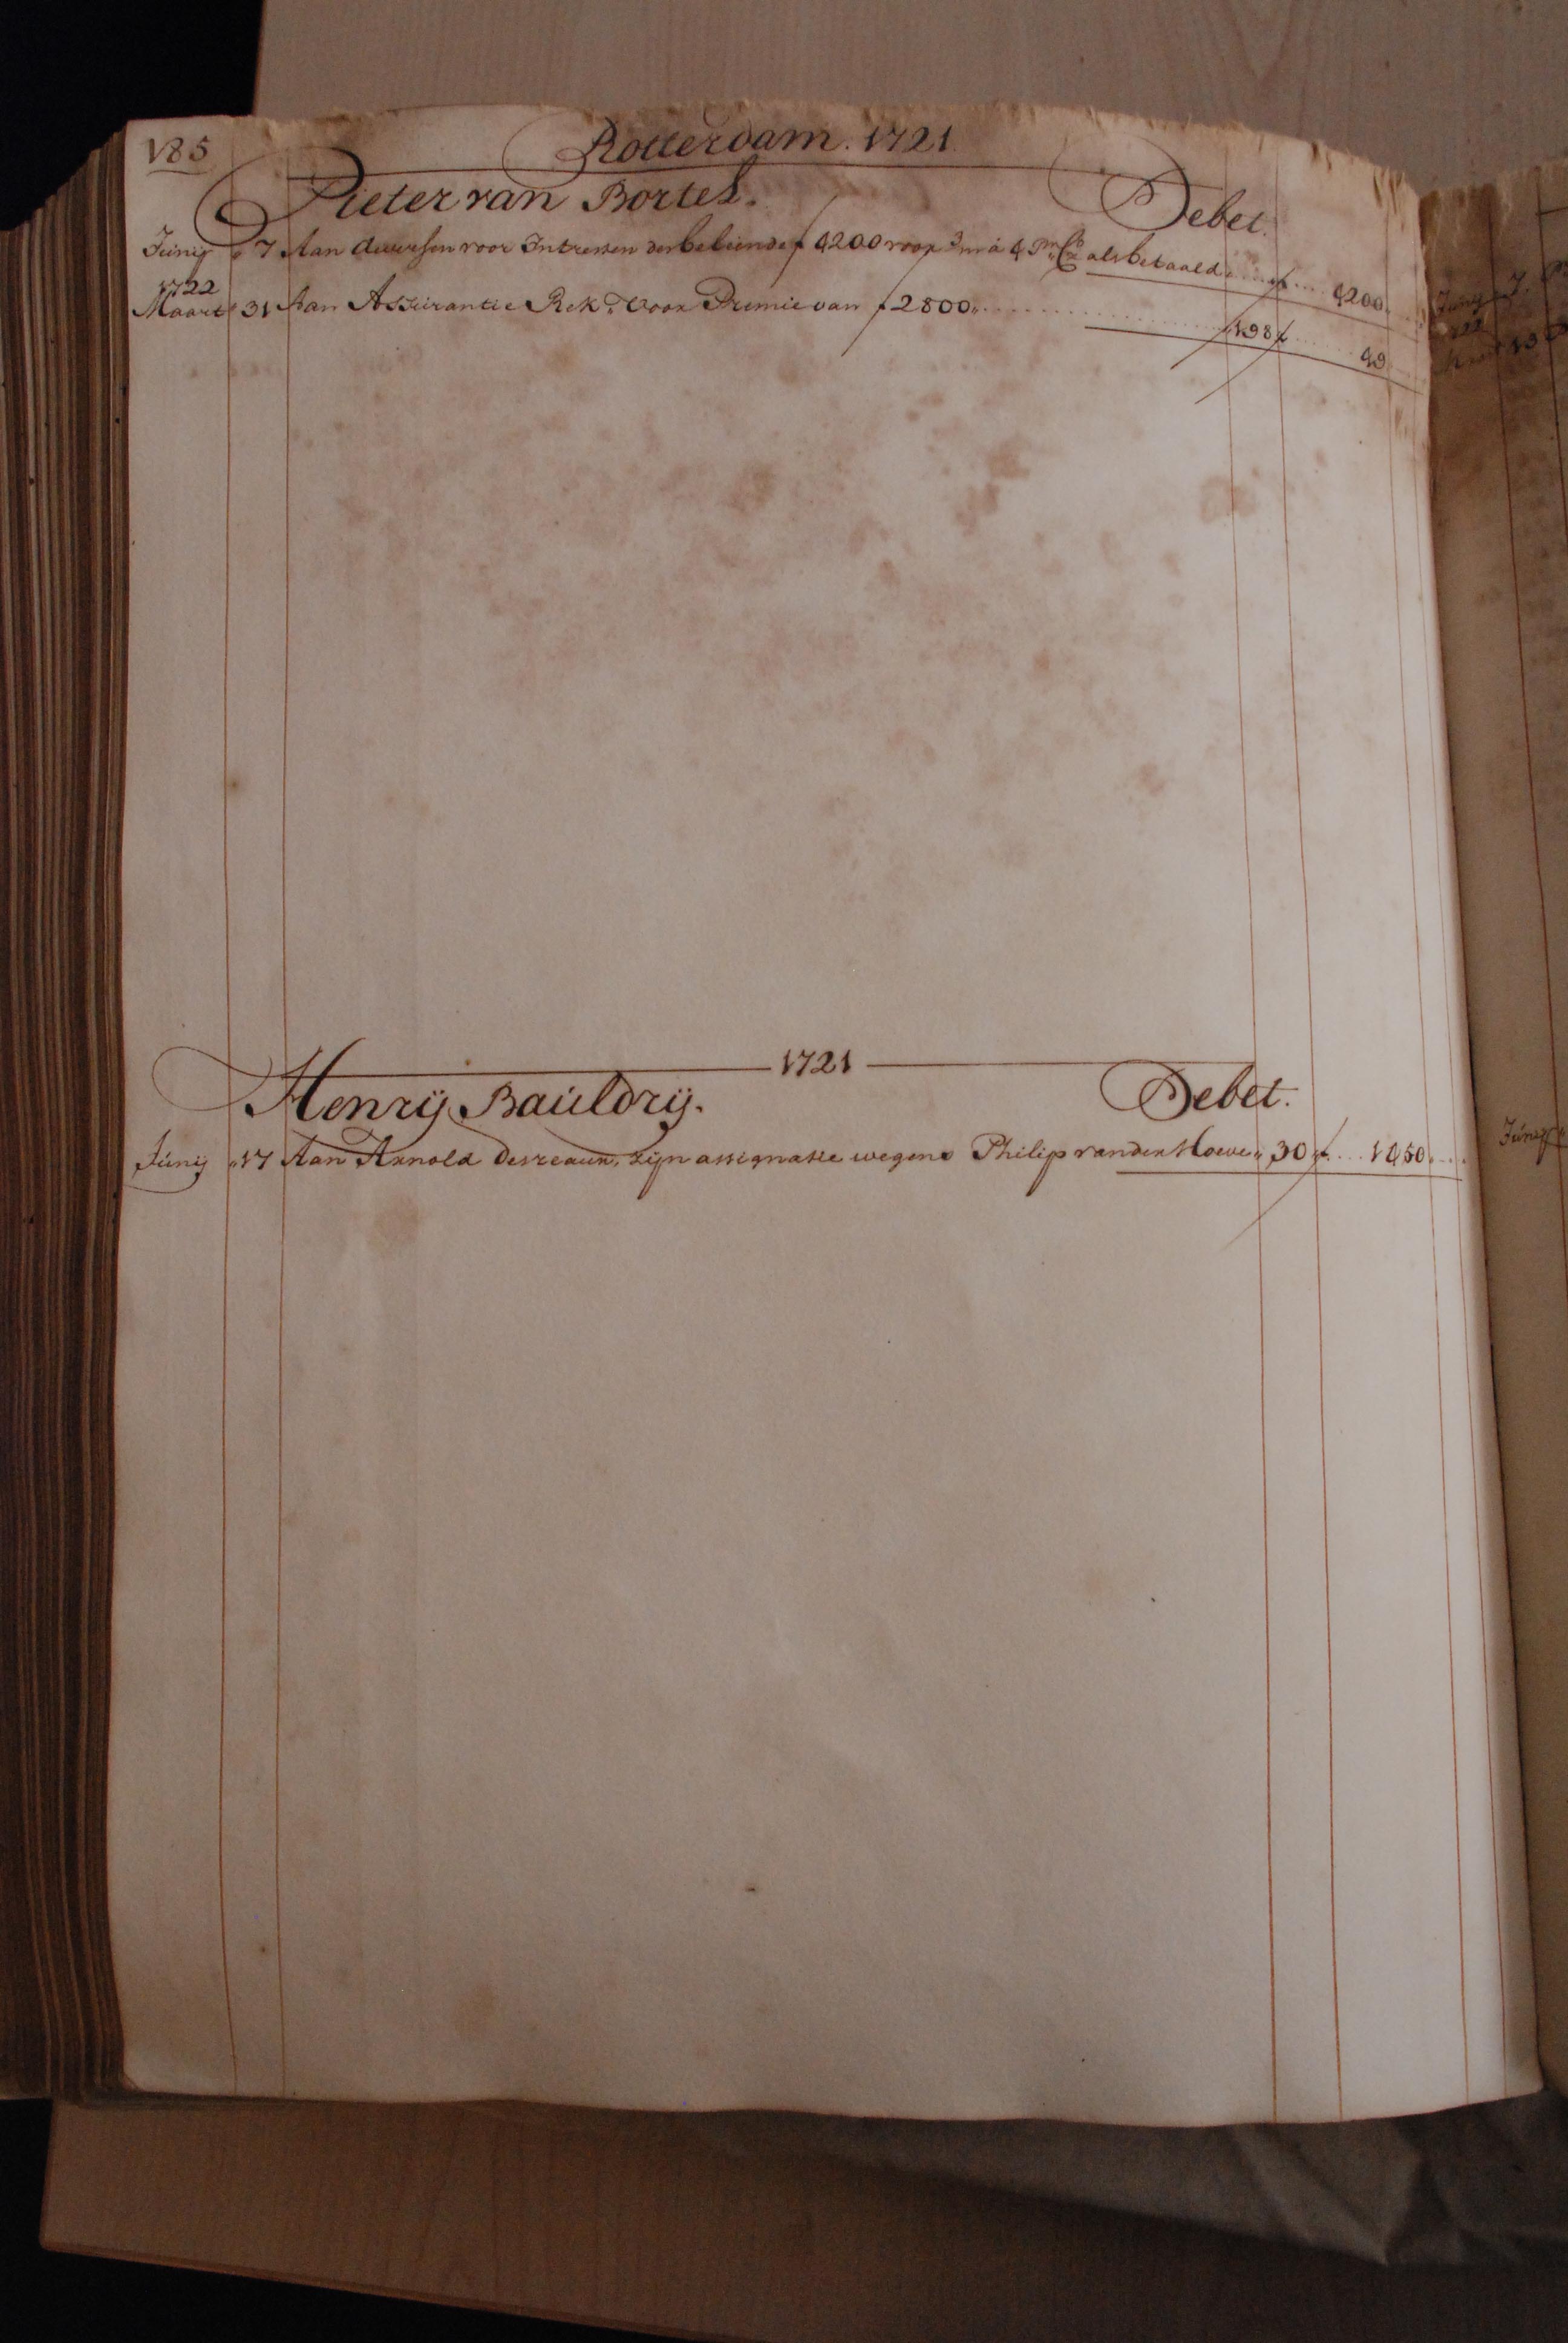 185
Rotterdam. 1721.
Pieter van Bortel. Debet.
Junij " 7 Aan diversen voor Intressen der beleende f 4200 voor 3 m à 4 P Co als betaald f .... 4200 "
1722
Maart 31 Aan Assurantie Rek. Voor Premie van f 2800 " ........ 198 f ........ 49
1721
Henrij Bauldrij. Debet.
Junij " 17 Aan Arnold Desreaux, zijn assignatie wegens Philip vander Hoeve " 30 f ... 1450 ....
Junij